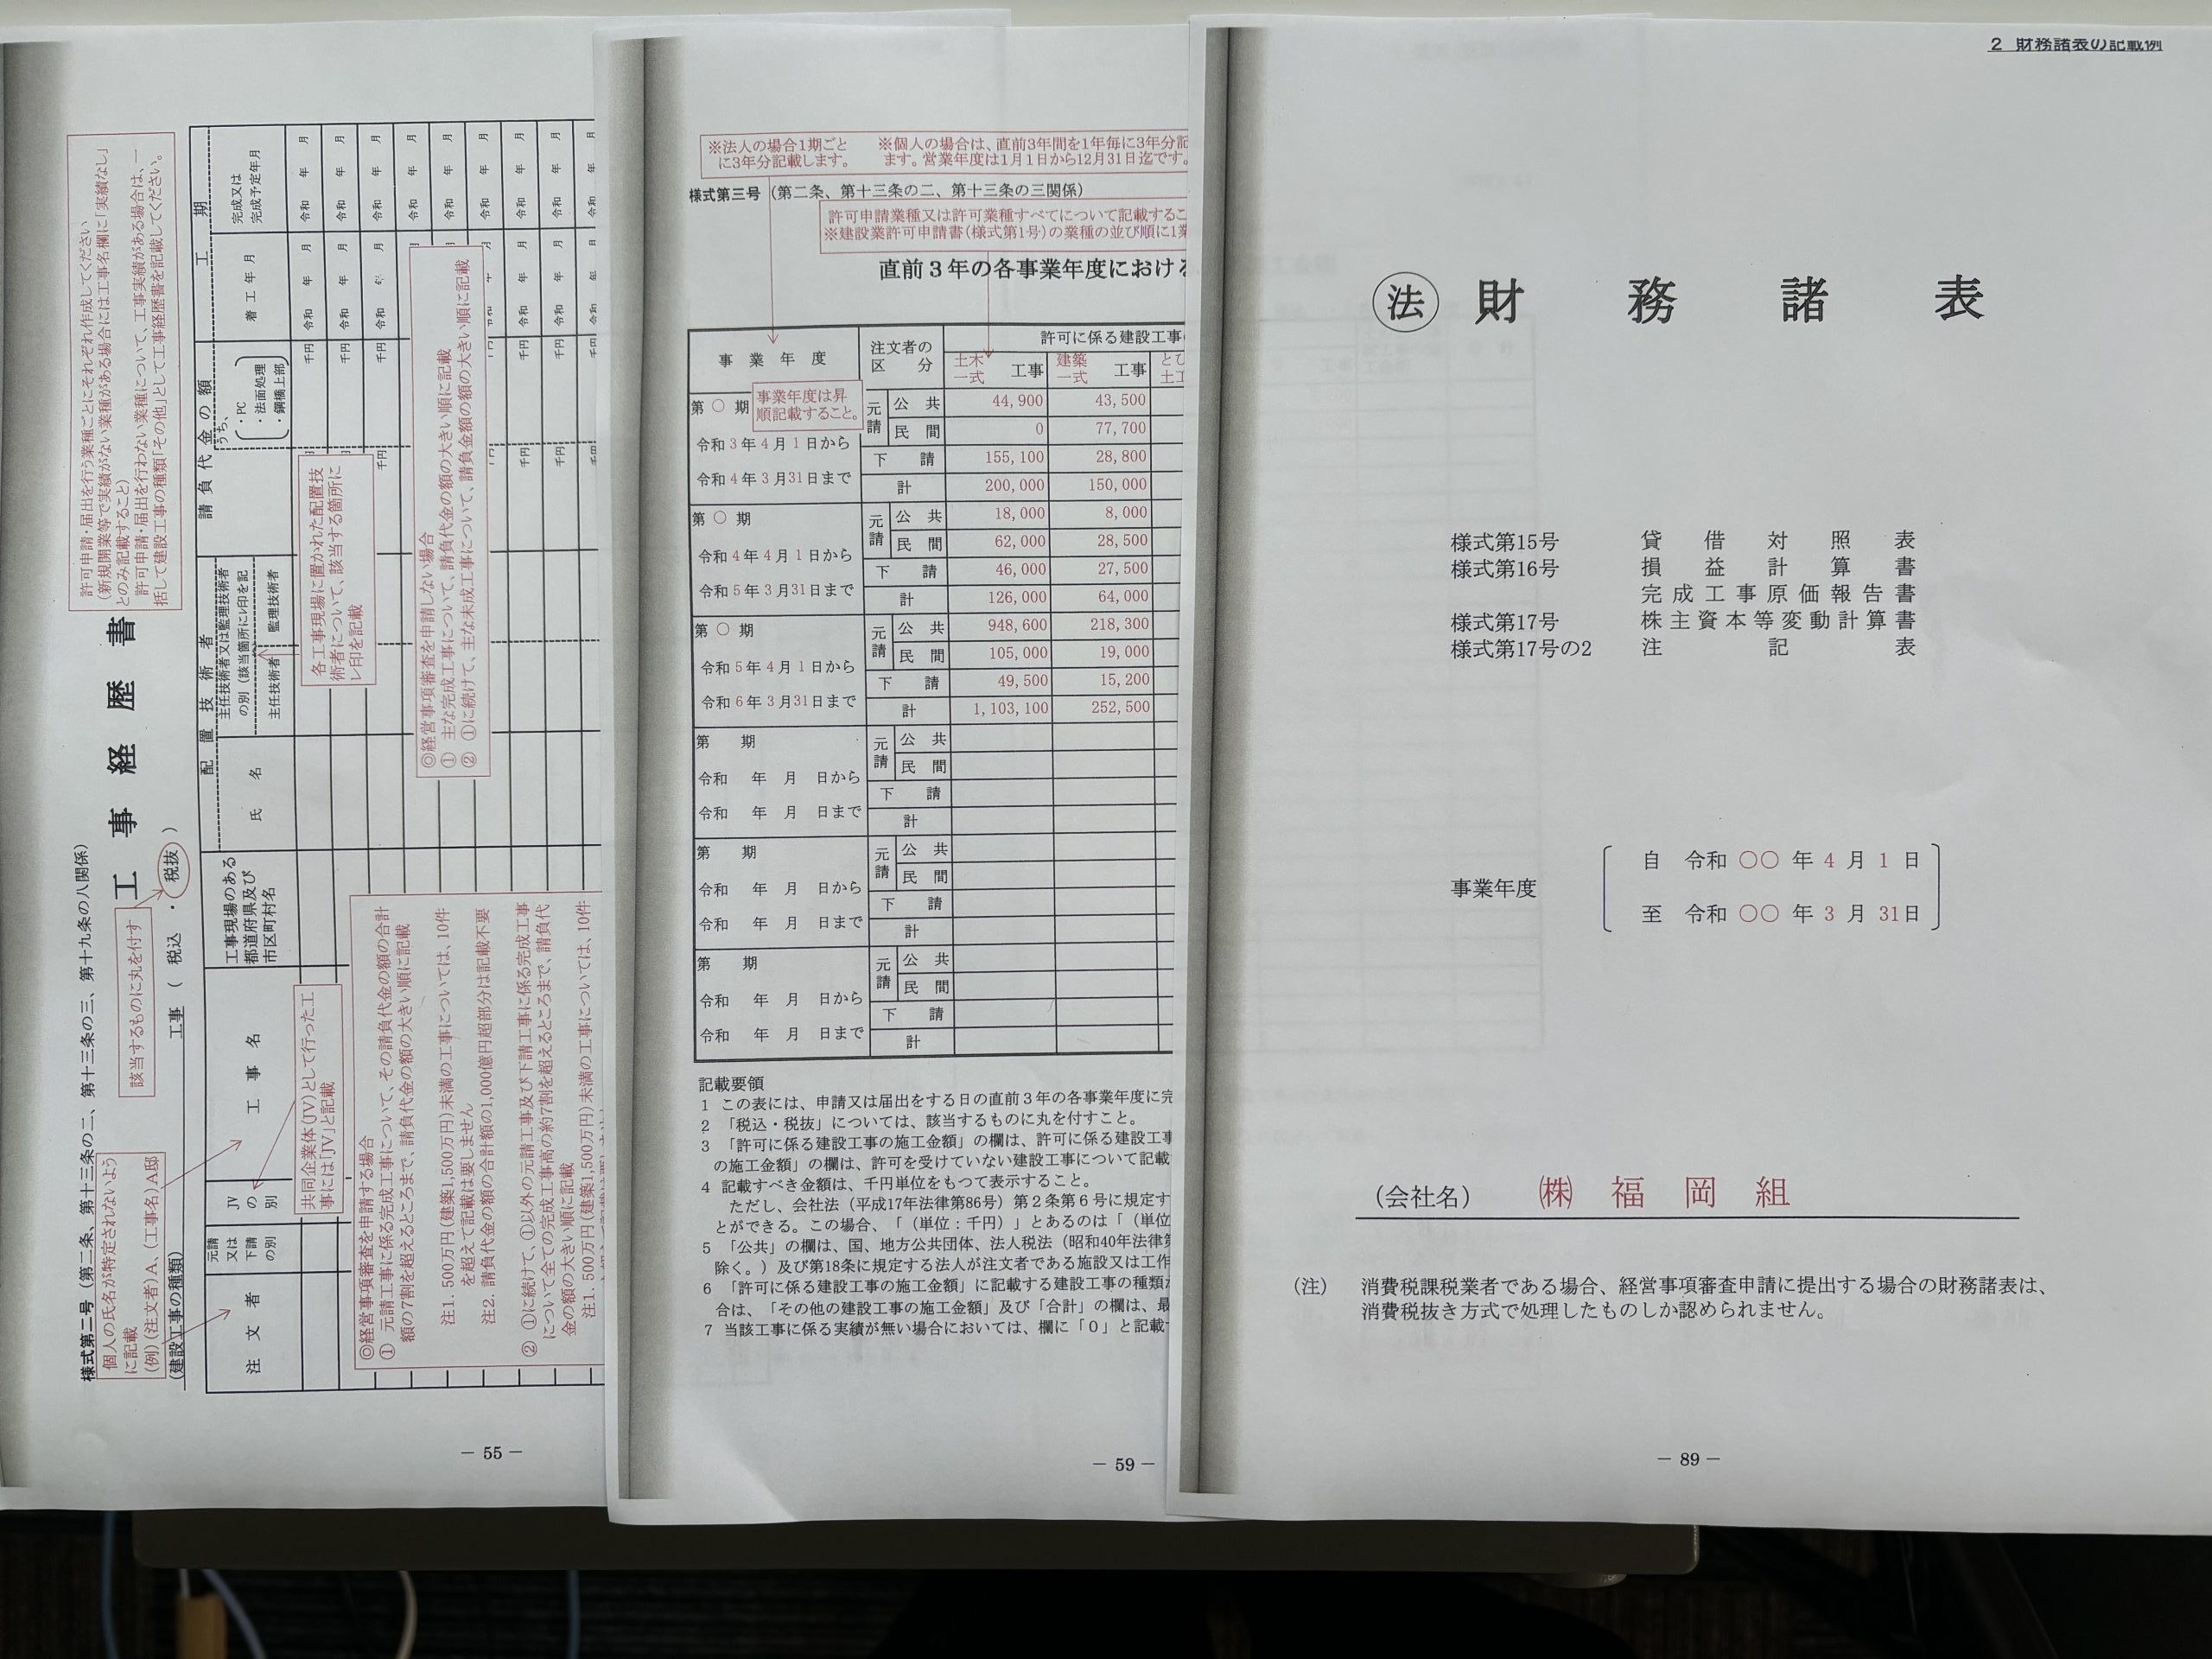 様式第二号（第二条、第十三条の二、第十三条の三、第十九条の八関係）
許可申請・届出を行う業種ごとにそれぞれ作成してください
（新規開業等で実績がない業種がある場合には工事名欄に「実績なし」
とのみ記載すること）
許可申請・届出を行わない業種について、工事実績がある場合は、一
括して建設工事の種類「その他」として工事経歴書を記載してください。
工事経歴書
個人の氏名が特定されないよう
に記載
（例）（注文者）A、（工事名）A邸
該当するものに丸を付す
（建設工事の種類） 工事 （ 税込 ・ 税抜 ）
注文者
元請
又は
下請
の別
JV
の
別
工事名
工事現場のある
都道府県及び
市区町村名
配置技術者
氏名
主任技術者又は監理技術者
の別（該当箇所にレ印を記
主任技術者 監理技術者
請負代金の額
うち、
・PC
・法面処理
・鋼橋上部
工期
着工年月
完成又は
完成予定年月
千円 千円 令和 年 月 令和 年 月
共同企業体（JV）として行った工
事には「JV」と記載
各工事現場に置かれた配置技
術者について、該当する箇所に
レ印を記載
◎経営事項審査を申請しない場合
① 主な完成工事について、請負代金の額の大きい順に記載
② ①に続けて、主な未成工事について、請負金額の額の大きい順に記載
◎経営事項審査を申請する場合
① 元請工事に係る完成工事について、その請負代金の額の合計
額の7割を超えるところまで、請負代金の額の大きい順に記載
注1. 500万円（建築1,500万円）未満の工事については、10件
を超えて記載は要しません
注2. 請負代金の額の合計額の1,000億円超部分は記載不要
② ①に続けて、①以外の元請工事及び下請工事に係る完成工事
について全ての完成工事高の約7割を超えるところまで、請負代
金の額の大きい順に記載
注1. 500万円（建築1,500万円）未満の工事については、10件
－ 55 －
※法人の場合1期ごと
に3年分記載します。
※個人の場合は、直前3年間を1年毎に3年分記
ます。営業年度は1月1日から12月31日迄です。
様式第三号（第二条、第十三条の二、第十三条の三関係）
許可申請業種又は許可業種すべてについて記載するこ
※建設業許可申請書（様式第1号）の業種の並び順に1業
直前３年の各事業年度における
事業年度 注文者の区分 許可に係る建設工事の
土木一式 工事 建築一式 工事 とび
土工
事業年度は昇
順記載すること。
第 〇 期 元請 公共 44,900 43,500
民間 0 77,700
令和 3 年 4 月 1 日から
下請 155,100 28,800
令和 4 年 3 月31日まで
計 200,000 150,000
第 〇 期 元請 公共 18,000 8,000
民間 62,000 28,500
令和 4 年 4 月 1 日から
下請 46,000 27,500
令和 5 年 3 月31日まで
計 126,000 64,000
第 〇 期 元請 公共 948,600 218,300
民間 105,000 19,000
令和 5 年 4 月 1 日から
下請 49,500 15,200
令和 6 年 3 月31日まで
計 1,103,100 252,500
第 期 元請 公共
民間
令和 年 月 日から
下請
令和 年 月 日まで
計
第 期 元請 公共
民間
令和 年 月 日から
下請
令和 年 月 日まで
計
第 期 元請 公共
民間
令和 年 月 日から
下請
令和 年 月 日まで
計
記載要領
1 この表には、申請又は届出をする日の直前３年の各事業年度に完
2 「税込・税抜」については、該当するものに丸を付すこと。
3 「許可に係る建設工事の施工金額」の欄は、許可に係る建設工事
の施工金額」の欄は、許可を受けていない建設工事について記載
4 記載すべき金額は、千円単位をもつて表示すること。
ただし、会社法（平成17年法律第86号）第２条第６号に規定す
とができる。この場合、「（単位：千円）」とあるのは「（単位
5 「公共」の欄は、国、地方公共団体、法人税法（昭和40年法律第
除く。）及び第18条に規定する法人が注文者である施設又は工作
6 「許可に係る建設工事の施工金額」に記載する建設工事の種類が
合は、「その他の建設工事の施工金額」及び「合計」の欄は、最
7 当該工事に係る実績が無い場合においては、欄に「０」と記載
－ 59 －
2 財務諸表の記載例
法 財務諸表
様式第15号 貸借対照表
様式第16号 損益計算書
完成工事原価報告書
様式第17号 株主資本等変動計算書
様式第17号の2 注記表
事業年度
自 令和 〇〇 年 4 月 1 日
至 令和 〇〇 年 3 月 31日
（会社名） ㈱ 福岡組
（注） 消費税課税業者である場合、経営事項審査申請に提出する場合の財務諸表は、
消費税抜き方式で処理したものしか認められません。
－ 89 －